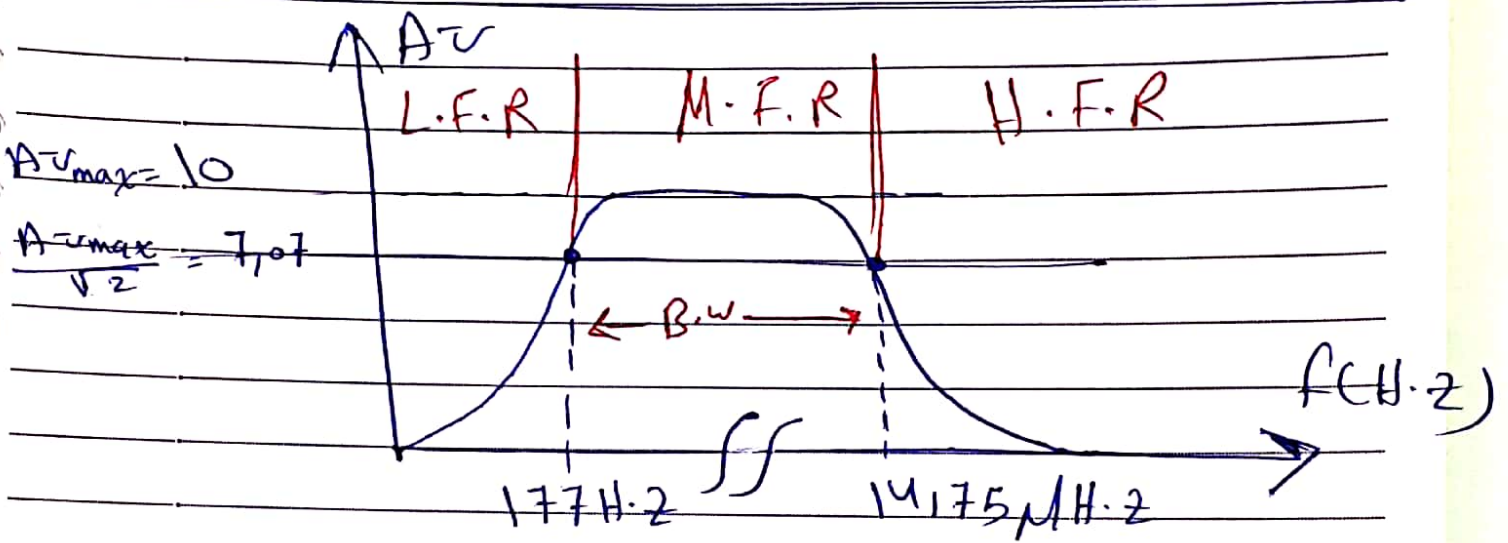 Av
L.F.R M.F.R H.F.R
Avmax= 10
Avmax/√2 = 7,07
B.w
f(H.z)
177H.z 14,75MH.z